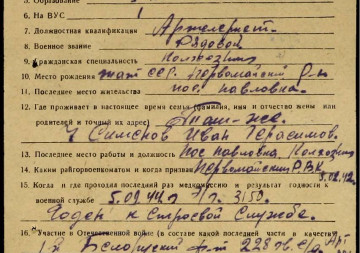 5. Образование
6. На ВУС 1
7. Должностная квалификация Артелерист
8. Военное звание Рядовой
9. Гражданская специальность Колхозник
10. Место рождения ССР. Первомайский р-н
пос. Павловка.
11. Последнее место жительства
12. Где проживает в настоящее время семья (фамилия, имя и отчество жены или
родителей и точный их адрес) Там-же.
Семенов Иван Герасимов.
13. Последнее место работы и должность Пос Павловка, Колхозник
14. Каким райгорвоенкоматом и когда призван Первомайским Р.В.К.
5.02.42
15. Когда и где проходил последний раз медкомиссию и результат годности к
военной службе 5.02.44г. 3150.
Годен к строевой службе.
16. Участие в Отечественной войне (в составе какой последней части в качестве
1-й Белорусский 223